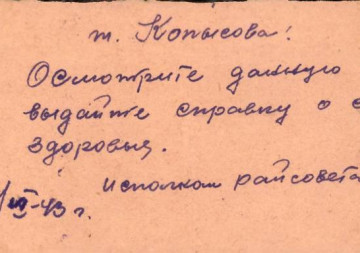 т. Копысова!
Осмотрите данную
выдайте справку о с
здоровья.
исполком райсовета
/VI-43 г.